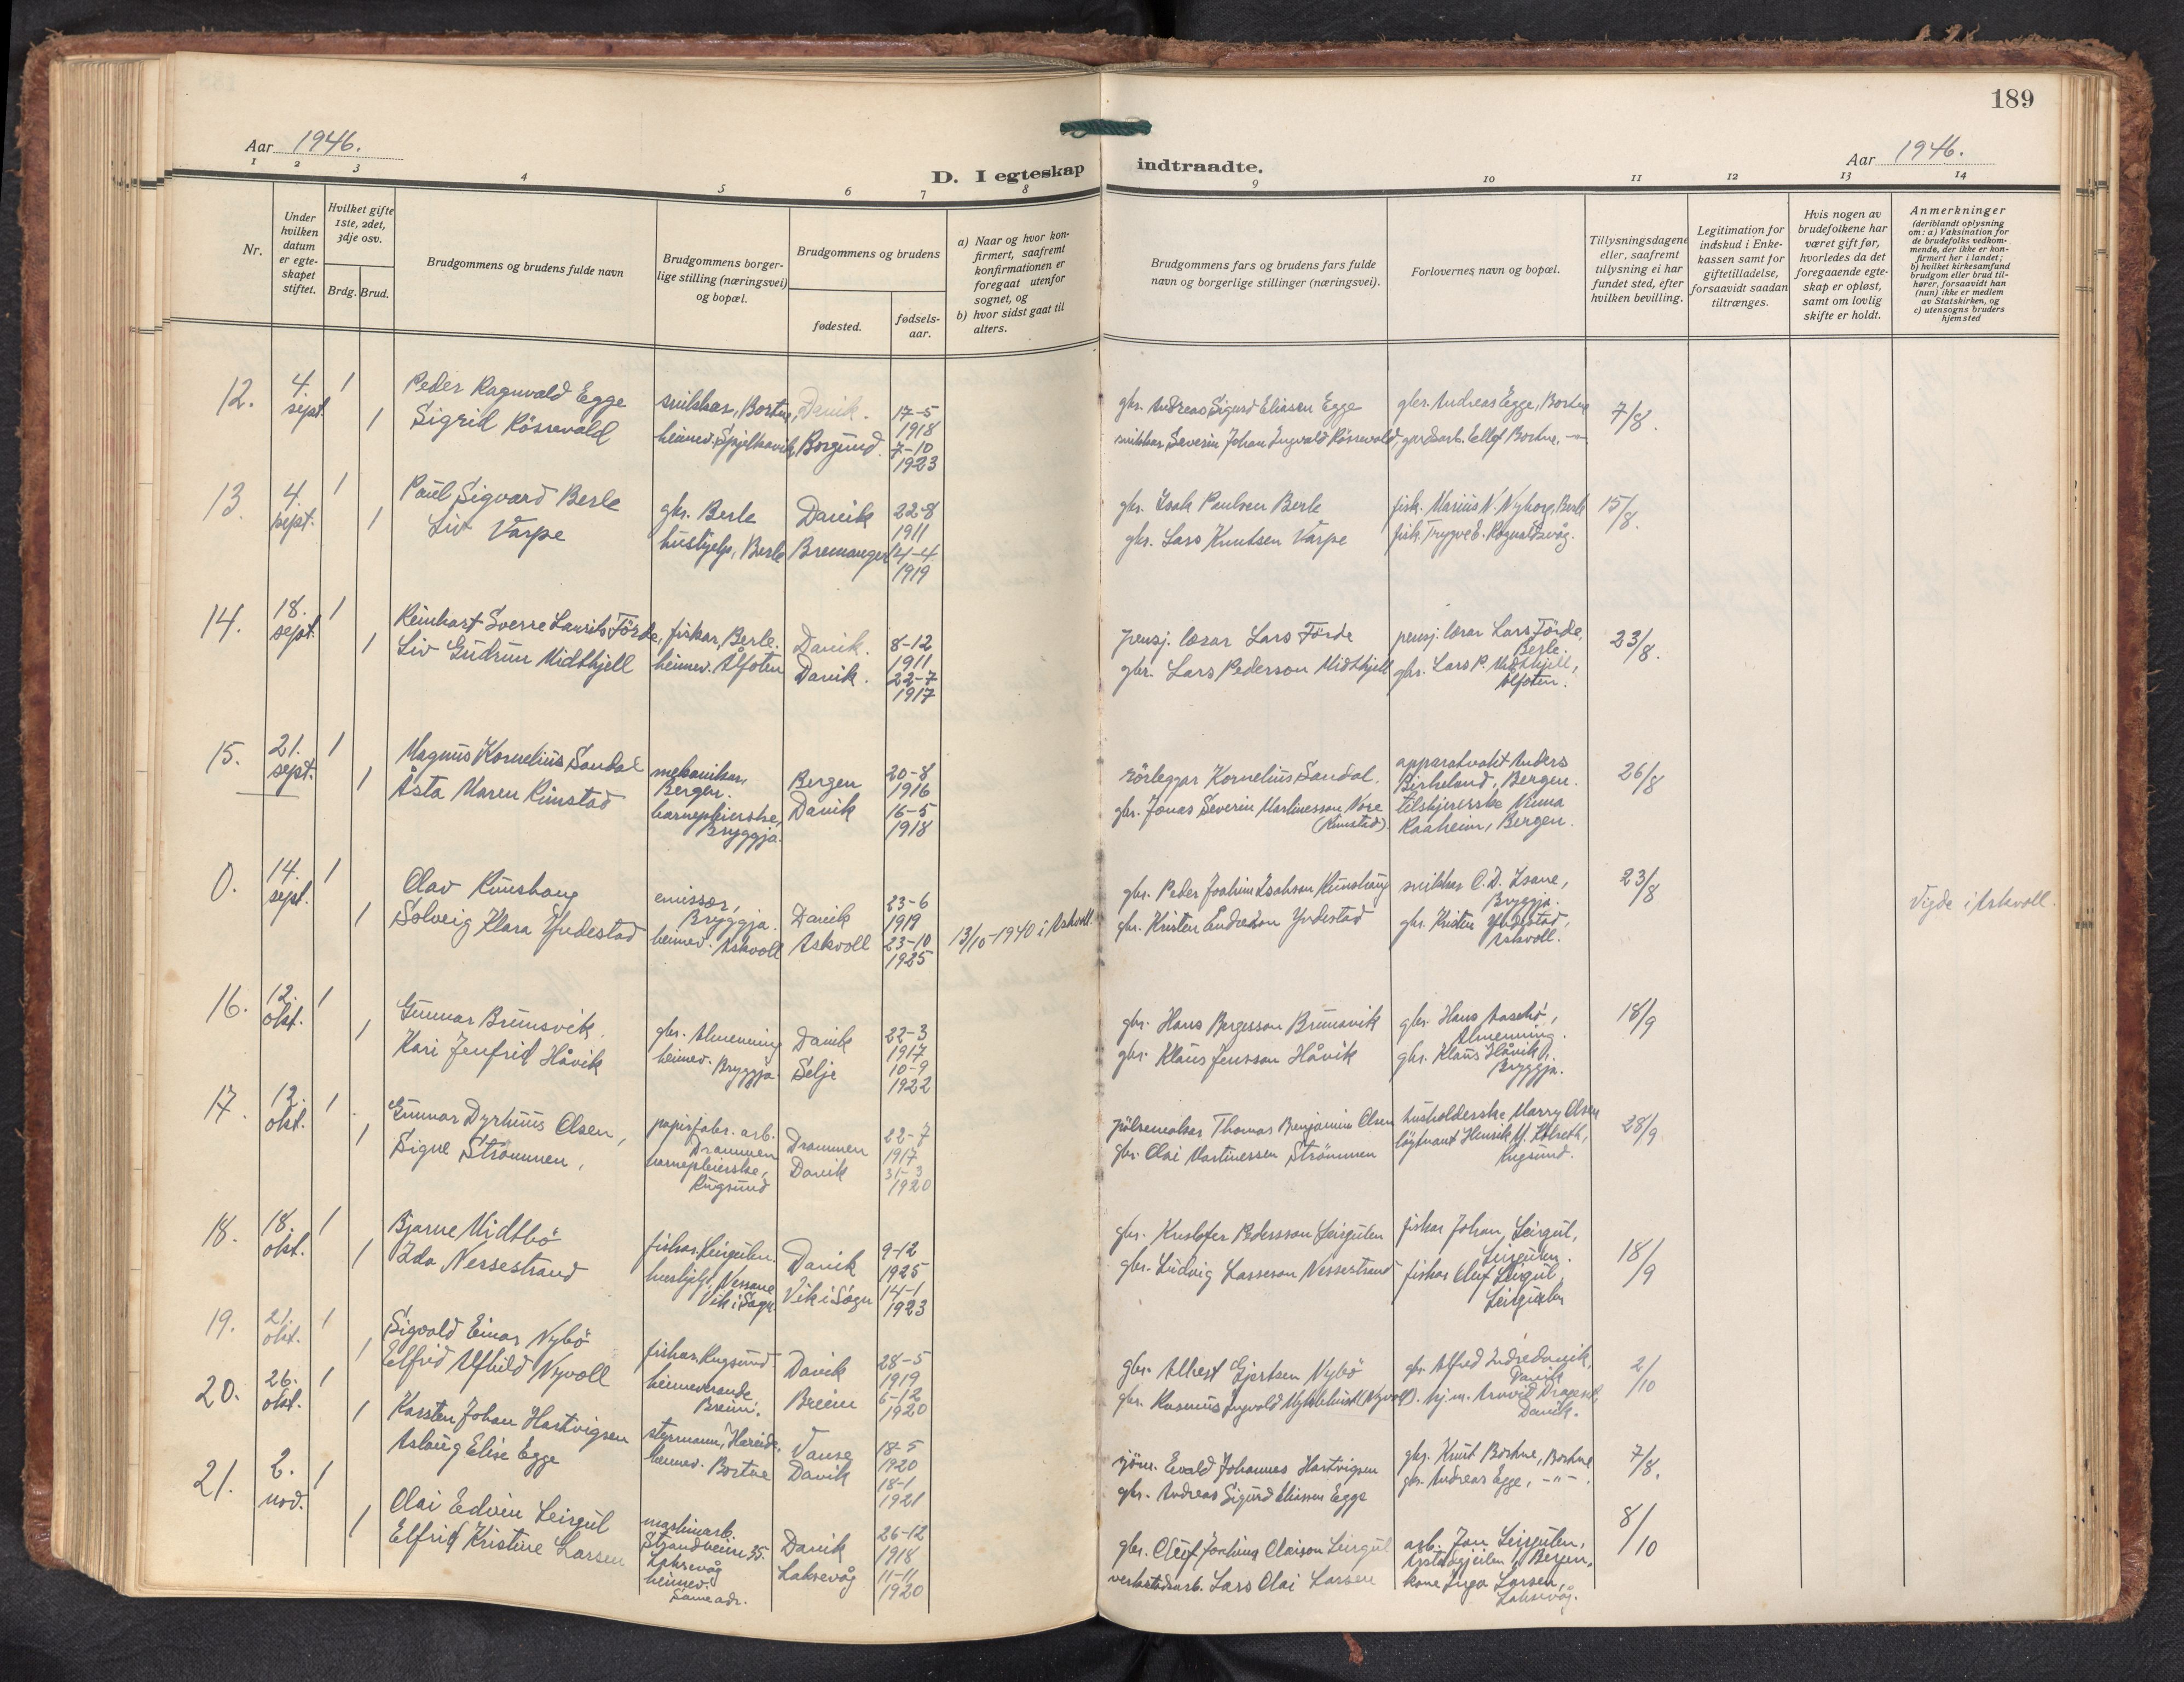 189
Aar 1946.
D. I egteskap
indtraadte.
Aar 1946.
1 2 3 4 5 6 7 8
9 10 11 12 13 14
Nr.
Under hvilken datum er egte-skapet stiftet.
Hvilket gifte 1ste, 2det, 3dje osv.
Brdg. Brud.
Brudgommens og brudens fulde navn
Brudgommens borger-lige stilling (næringsvei) og bopæl.
Brudgommens og brudens
fødested.
fødsels-aar.
a) Naar og hvor kon-firmert, saafremt konfirmationen er foregaat utenfor sognet, og
b) hvor sidst gaat til alters.
Brudgommens fars og brudens fars fulde navn og borgerlige stillinger (næringsvei).
Forlovernes navn og bopæl.
Tillysningsdagene eller, saafremt tillysning ei har fundet sted, efter hvilken bevilling.
Legitimation for indskud i Enke-kassen samt for giftetilladelse, forsaavidt saadan tiltrænges.
Hvis nogen av brudefolkene har været gift før, hvorledes da det foregaaende egte-skap er opløst, samt om lovlig skifte er holdt.
Anmerkninger (deriblandt oplysning om: a) Vaksination for de brudefolks vedkom-mende, der ikke er kon-firmert her i landet; b) hvilket kirkesamfund brudgom eller brud til-hører, forsaavidt han (hun) ikke er medlem av Statskirken, og c) utensogns bruders hjemsted
12. 4. sept. 1 Peder Ragnvald Egge snikkar, Bortne, Davik. 17-5 1918 gbr. Andreas Sigurd Eliasen Egge gbr. Andreas Egge, Bortne 7/8.
1 Sigrid Rösnevald heimev. Spjelkavik, Borgund. 7-10 1923 snikkar Severin Johan Ingvald Rösnevald, gardsarb. Ellef Bortne, -"-
13. 4. sept. 1 Paul Sigvard Berle gbr. Berle Davik 22-8 1911 gbr. Isak Paulsen Berle fisk. Marius N. Nyborg, Berle 15/8.
1 Liv Varpe hushjelp, Berle Bremanger 14-4 1919 gbr. Lars Knutsen Varpe fisk. Trygve E. Rognaldsvåg.
14. 18. sept. 1 Reinhart Sverre Laurits Förde, fiskar, Berle. Davik. 8-12 1911 pensj. lærar Lars Förde pensj. lærar Lars Förde, Berle. 23/8.
1 Liv Gudrun Midthjell heimev. Ålfoten Davik. 22-7 1917 gbr. Lars Pederson Midthjell gbr. Lars P. Midthjell, Ålfoten.
15. 21. sept. 1 Magnus Kornelius Sandal mekanikar, Bergen. Bergen 20-8 1916 rörleggar Kornelius Sandal. apparatvakt Anders Birkeland, Bergen. 26/8
1 Åsta Maren Rimstad barnepleierske, Bryggja. Davik 16-5 1918 gbr. Jonas Severin Martinesson Nore (Rimstad). Raaheim, Bergen.
0. 14. sept. 1 Olav Rimshaug emissær, Bryggja. Davik 23-6 1919 gbr. Peder Joakim Isakson Rimshaug snikkar O. D. Isane, Bryggja. 23/8 Vigde i Askvoll.
1 Solveig Klara Yndestad heimev. Askvoll Askvoll 23-10 1925 13/10-1940 i Askvoll. gbr. Kristen Endreson Yndestad gbr. Kristen Yndestad, Askvoll.
16. 12. okt. 1 Gunnar Brunsvik, gbr. Almenning Davik 22-3 1917 gbr. Hans Bergesson Brunsvik gbr. Hans Aasebö, Almenning. 18/9
1 Kari Jenfrid Håvik heimev. Bryggja Selje 10-9 1922 gbr. Klaus Jensson Håvik gbr. Klaus Håvik, Bryggja.
17. 12. okt. 1 Gunnar Dyrhuus Olsen, papirfabr. arb. Drammen Drammen 22-7 1917 Thomas Benjamin Olsen husholderske Marry Olsen 28/9
1 Signe Strömmen, barnepleierske, Rugsund Davik 31-3 1920 gbr. Olai Martinessen Strömmen löytnant Henrik M. Rugsund.
18. 18. okt. 1 Bjarne Midtbö fiskar, Leirgulen. Davik 9-12 1925 gbr. Kristofer Pedersson Leirgulen fiskar Johan Leirgul, Leirgulen. 18/9
1 Ida Nessestrand hushjelp, Nessane Vik i Sogn Vik i Sogn 14-1 1923 gbr. Ludvig Lasseson Nessestrand fiskar Oluf Leirgul, Leirgulen
19. 21. okt. 1 Sigvald Einar Nybö fiskar, Rugsund. Davik 28-5 1919 gbr. Albert Gjertsen Nybö gbr. Alfred Indredavik, Davik 2/10
1 Elfrid Alfhild Nyvoll heimeverande, Breim. Breim 6-12 1920 gbr. Rasmus Ingvald Myklebust (Nyvoll). Arnvid Drageset, Davik.
20. 26. okt. 1 Karsten Johan Hartvigsen styrmann, Hareid. Vanse 18-5 1920 sjöm. Evald Johannes Hartvigsen gbr. Knut Bortne, Bortne 7/8.
1 Aslaug Elise Egge heimev. Bortne Davik 18-1 1921 gbr. Andreas Sigurd Eliasen Egge gbr. Andreas Egge, -"-.
21. 2. nov. 1 Olai Edvin Leirgul maskinarb. Strandheim 35. Laksevåg Davik 26-12 1918 gbr. Oluf Joakim Olaison Leirgul arb. Jan Leirgulen, Bergen. 8/10
1 Elfrid Kristine Larsen heimev. Same adr. Laksevåg 11-11 1920 verkstadsarb. Lars Olai Larsen kone Inga Larsen, Laksevåg.